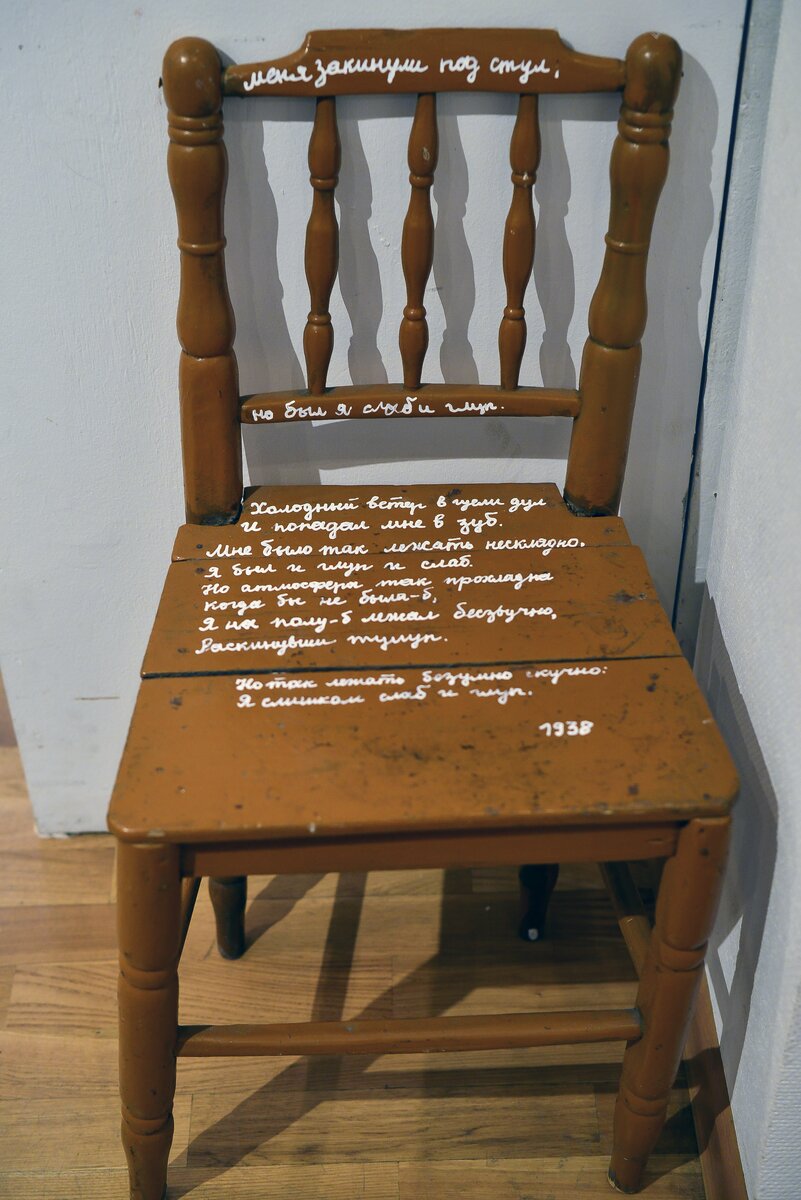 меня закинули под стул,
но был я слаб и глуп.
Холодный ветер в щели дул
и попадал мне в зуб.
Мне было так лежать нескладно,
Я был и глуп и слаб.
Но атмосфера так прохладна
когда бы не была-б,
Я на полу-б лежал беззвучно,
Раскинувши тулуп.
Но так лежать безумно скучно:
Я слишком слаб и глуп.
1938